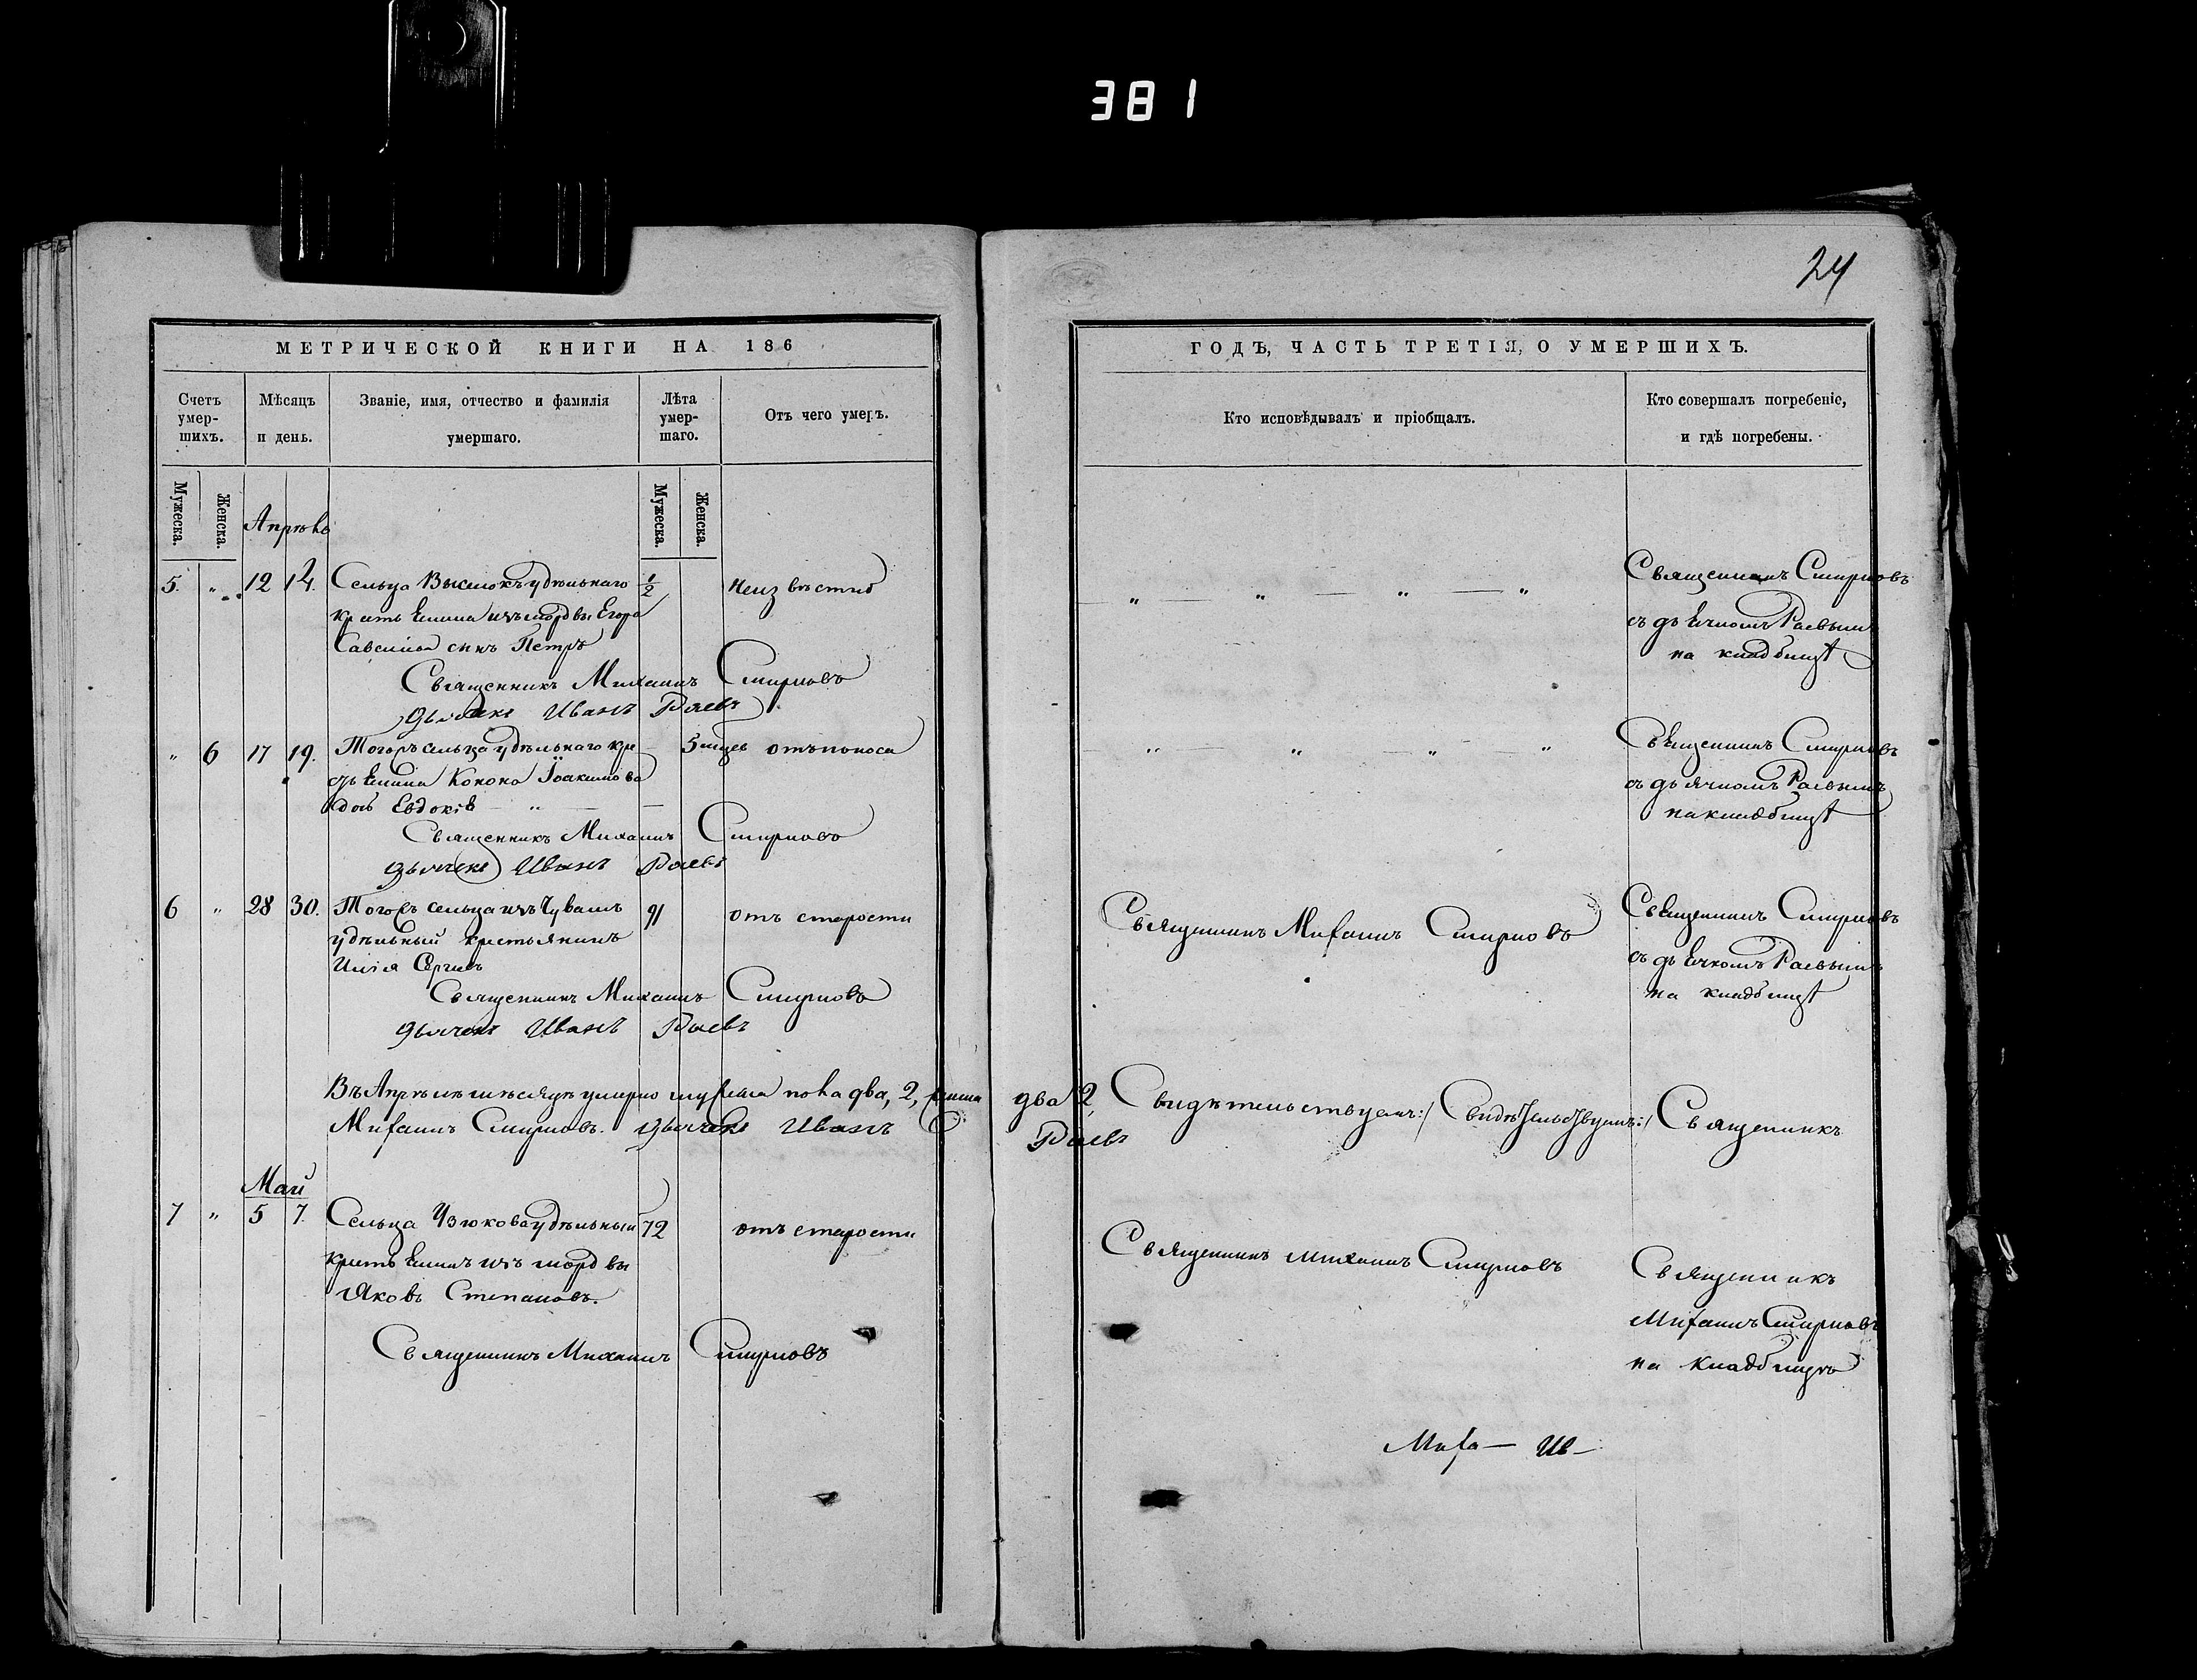 381
24
МЕТРИЧЕСКОЙ КНИГИ НА 186
Счетъ умер-шихъ.
Мѣсяцъ и день.
Званіе, имя, отчество и фамилія умершаго.
Лѣта умер-шаго.
Отъ чего умеръ.
Мужеска.
Женска.
Мужеска.
Женска.
Апрѣль
5. " 12 14. Сельца удѣльнаго 1/2 неизвѣстно
крестьянина изъ мордвы Егора
сынъ Петръ
Священникъ Михаилъ Смирновъ
дьячекъ Иванъ Раевъ
" 6 17 19. Тогожъ сельца удѣльнаго кре 5 мцев отъ поноса
стьянина Конона Іоакимова
дочь Евдокія "
Священникъ Михаилъ Смирновъ
дьячекъ Иванъ Раевъ
6 " 28 30. Тогожъ сельца изъ Чувашъ 91 отъ старости
удѣльный крестьянинъ
Илія Сергіевъ
Священникъ Михаилъ Смирновъ
дьячекъ Иванъ Раевъ
Въ Апрѣлѣ мѣсяцѣ умерло мужеска пола два, 2,
Михаилъ Смирновъ. дьячекъ Иванъ
Май
7 " 5 7. Сельца удѣльный 72 отъ старости
крестьянинъ изъ мордвы
Яковъ Степановъ.
Священникъ Михаилъ Смирновъ
ГОДЪ, ЧАСТЬ ТРЕТІЯ, О УМЕРШИХЪ.
Кто исповѣдывалъ и пріобщалъ.
Кто совершалъ погребеніе,
и гдѣ погребены.
" " " " Священникъ Смирновъ
съ дьячкомъ Раевымъ
на кладбищѣ
" " " " Священникъ Смирновъ
съ дьячкомъ Раевымъ
на кладбищѣ
Священникъ Михаилъ Смирновъ Священникъ Смирновъ
съ дьячкомъ Раевымъ
на кладбищѣ
два 2, Свидѣтельствуемъ:/ Свидѣтельствуемъ:/ Священникъ
Раевъ
Священникъ Михаилъ Смирновъ Священникъ
Михаилъ Смирновъ
на кладбищѣ
Миха— Ив—